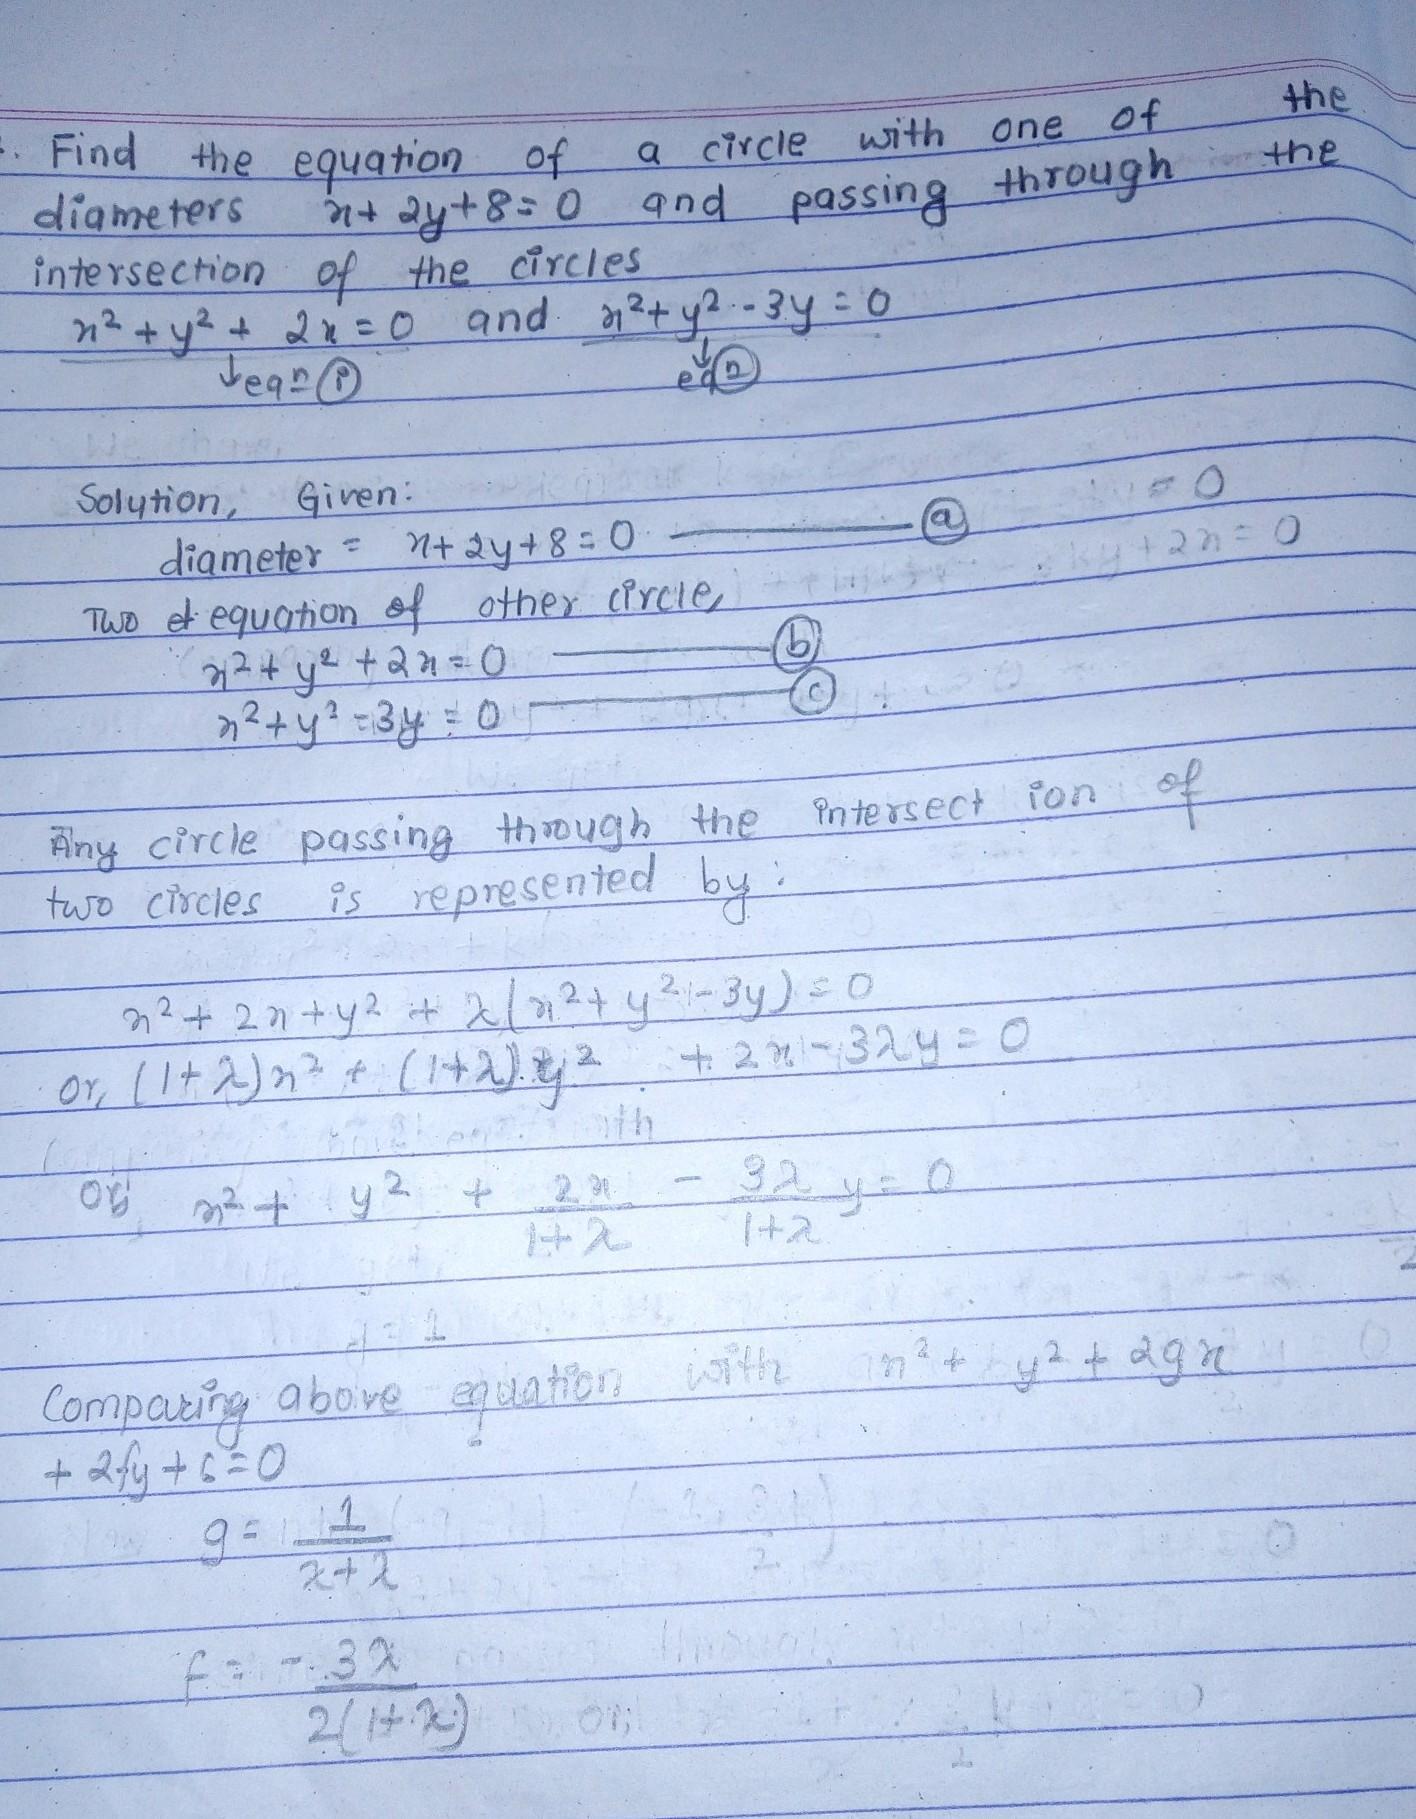 . Find the equation of a circle with one of the
diameters x + 2y + 8 = 0 and passing through the
intersection of the circles
x² + y² + 2x = 0 and x² + y² - 3y = 0
↓eqn (i) ↓eq (2)
Solution, Given:
diameter = x + 2y + 8 = 0 (a)
Two equation of other circle,
x² + y² + 2x = 0 (b)
x² + y² - 3y = 0 (c)
Any circle passing through the intersect ion of
two circles is represented by:
x² + 2x + y² + λ(x² + y² - 3y) = 0
or, (1+λ)x² + (1+λ)y² + 2x - 3λy = 0
or, x² + y² + 2x/1+λ - 3λ/1+λ y = 0
Comparing above equation with x² + y² + 2gx
+ 2fy + c = 0
g = 1/λ+λ
f = - 3λ/2(1+λ)